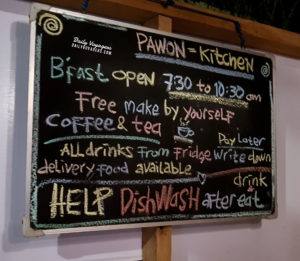 Daily Voyagers
DAILYVOYAGERS.COM
PAWON = Kitchen
B'fast open 7:30 to 10:30 am
Free make by yourself
Coffee & tea
Pay Later
ALL drinks from Fridge write down
delivery food available
drink
HELP DishWASH after eat